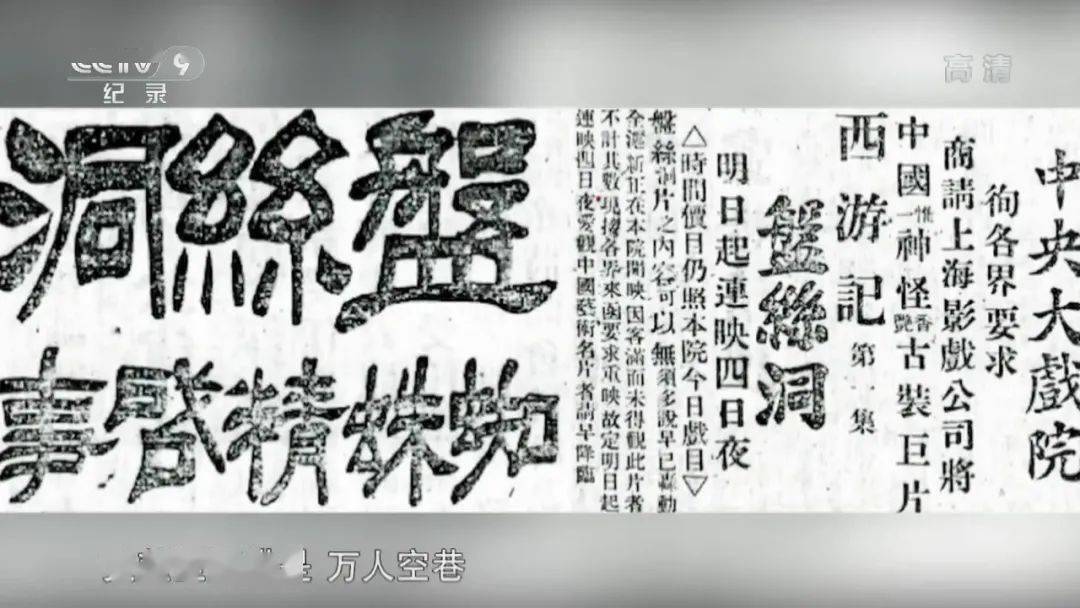 CCTV 9
纪录
高清
中央大戲院
徇各界要求
商請上海影戲公司將
中國惟一神怪香艷古裝巨片
西游記第 集
盤絲洞
明日起連映四日夜
△時間價目仍照本院今日戲目▽
盤絲洞片之內容可以無須多說早已轟動
全滬新正在本院開映因客滿而未得觀此片者
不計其數現接各界來函要求重映故定明日起
連映四日夜愛觀中國藝術名片者請早降臨
盤絲洞
蜘蛛精啓事
万人空巷